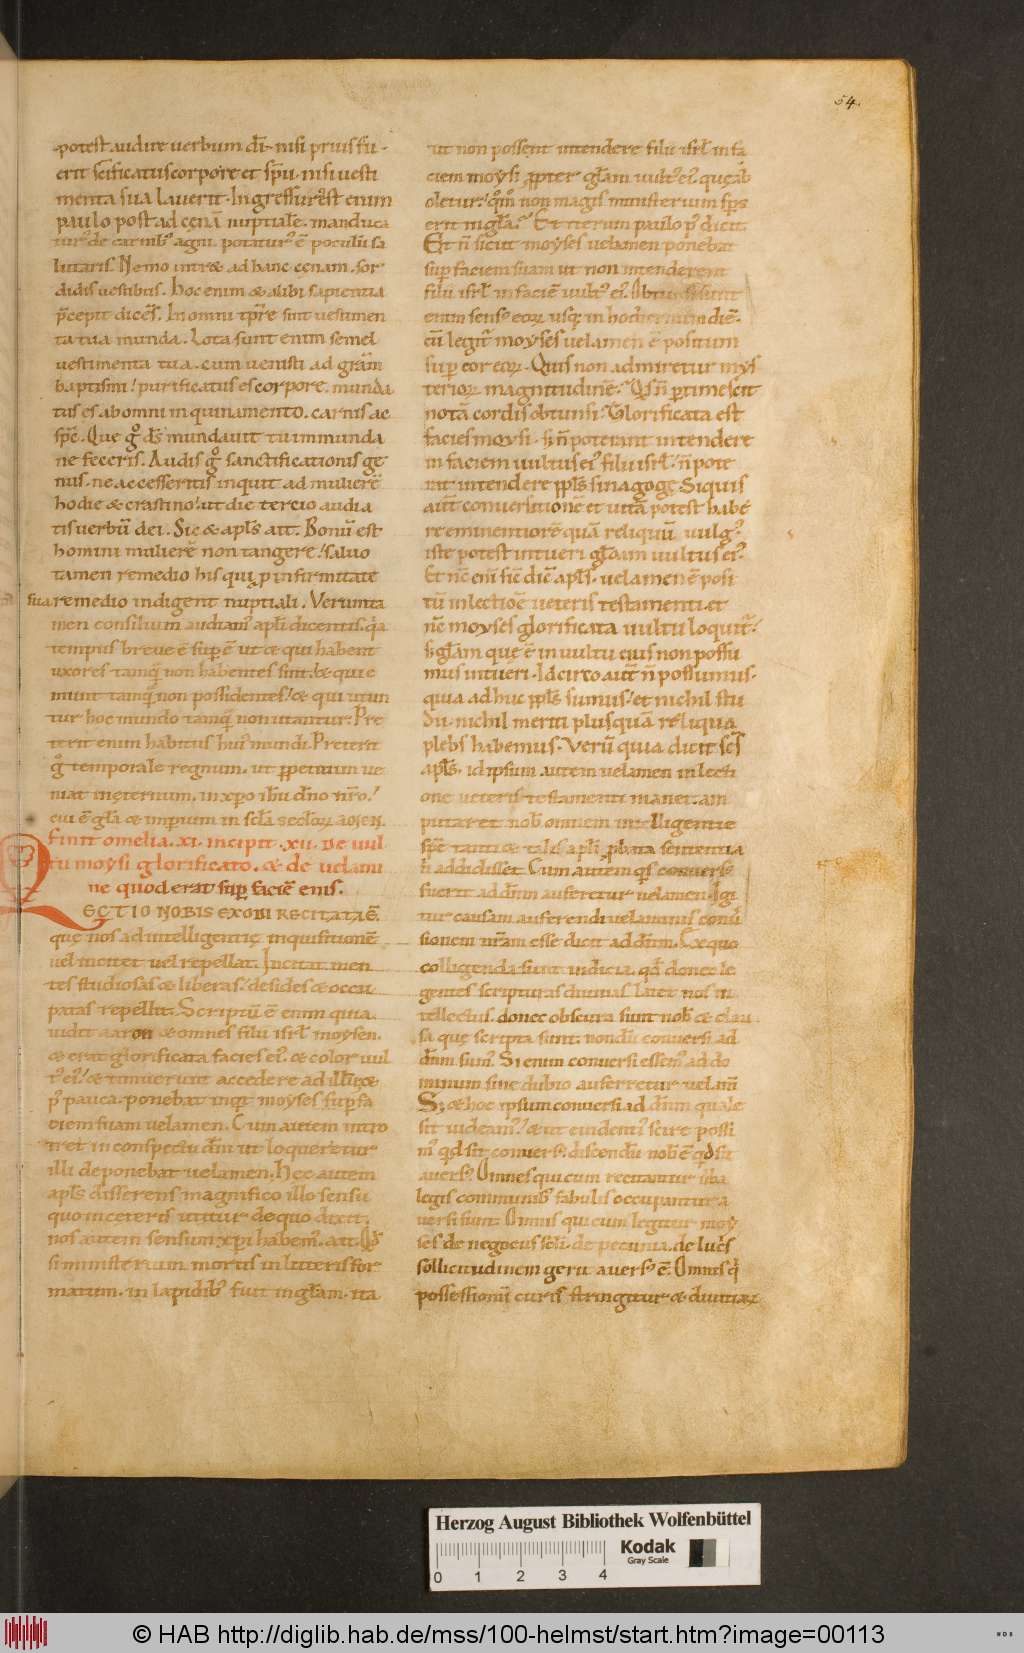 54.
potest audire uerbum dī. nisi prius fu-
erit sc̄ificatus corpore et sp̄u. nisi uesti
menta sua lauerit. Ingressur᷒ est enim
paulo post ad cenā nuptiale. manduca
tur᷒ de carnib᷒ agni. potatur᷒ ē poculū sa
lutaris. Nemo intr& ad hanc cęnam. sor
didis uestibus. Hoc enim & alibi sapientia
p̄cepit dicēs. In omni tp̄re sint uestimen
ta tua munda. Lota sunt enim semel
uestimenta tua. cum uenisti ad grām
baptismi. purificatus es corpore. munda
tus es ab omni inquinamento. carnis ac
sp̄c. Que gͦ ds̄ mundauit tu immunda
ne feceris. Audis gͦ sanctificationis ge
nus. ne accesseritis inquit ad mulierē
hodie & crastino. ut die tercio audia
tis uerbū dei. Sic & apl̄s ait. Bonū est
homini mulierē non tangere. saluo
tamen remedio his qui ꝓ infirmitate
sua remedio indigent nuptiali. Verunta
men consilium audiam᷒ apl̄i dicentis. qa
tempus breue ē sup ē ut & qui habent
uxores tamqͣ non habentes sint. & qui e
munt tamqͣ non possidentes. & qui utun
tur hoc mundo tamqͣ non utantur. Pre
terit enim habitus hui᷒ mundi. Preterit
gͦ temporale regnum. ut ꝑpetuum ue
niat in ęternum. in xp̄o ihū dn̄o nr̄o.
cui ē gl̄a & imperium in scl̄a seclorꝝ amen.
Finit omelia. XI. incipit. XII. De uul
tu moysi glorificato. & de uelami
ne quod erat sup faciē eius.
LECTIO NOBIS EXODI RECITATA Ē.
quę nos ad intelligentię inquisitionē
uel incitet uel repellat. Incitat men
tes studiosas & liberas. desides & occu
patas repellit. Scriptū ē enim quia
uidit aaron & omnes filii isrl̄ moysen.
& erat glorificata facies ei᷒. & color uul
t᷒ ei᷒. & timuerunt accedere ad illū. &
pͦ pauca. ponebat inqͥt moyses sup fa
ciem suam uelamen. Cum autem intro
iret in conspectu dn̄i ut loqueretur
illi deponebat uelamen. Hec autem
apl̄s disserens magnifico illo sensu
quo in ceteris utitur de quo dixit.
nos autem sensum xp̄i habem᷒. ait. Qd̄
si ministerium mortis in litteris for
matum. in lapidib᷒ fuit in gl̄am. ita
ut non possent intendere filii isrl̄ in fa
ciem moysi ꝓpter gl̄am uult᷒ ei᷒. quę ab
oletur. qͦm̄ non magis ministerium sp̄s
erit in gl̄a. Et iterum paulo pͦ dicit.
Et n̄ sicut moyses uelamen ponebat
sup faciem suam ut non intenderent
filii isrl̄ in faciē uult᷒ ei᷒. Obtunsi sunt
enim sens᷒ eorꝝ usq; in hodiernum diē.
cū legit᷑ moyses uelamen ē positum
sup cor eorꝝ. Quis non admiretur mys
teriorꝝ magnitudinē. Qs n̄ ꝑtimescit
notā cordis obtunsi. Glorificata est
facies moysi. s; n̄ poterant intendere
in faciem uultus ei᷒ filii isrl̄. n̄ pote
rit intendere ppl̄s sinagogę. Si quis
aūt conuersationē et uitā potest habe
re eminentiorē quā reliquū uulg᷒.
iste potest intueri gl̄am uultus ei᷒.
Et nc̄ eni̅ sic̄ dic̄ apl̄s. uelamen ē posi
tū in lectiōe ueteris testamenti. et
nc̄ moyses glorificata uultu loquit᷑.
s; gl̄am que ē in uultu eius non possu
mus intueri. Idcirco aūt n̄ possumus.
quia adhuc ppl̄s sumus. et nichil stu
dii. nichil meriti plusquā reliqua
plebs habemus. Verū quia dicit sc̄s
apl̄s. id ipsum autem uelamen in lecti
one ueteris testamenti manet. am
putaret nob᷒ omnem intelligentie
spē tanti & talis apl̄i ꝓbata sententia
n̄ addidisset. Cum autem qͥs conuers᷒
fuerit ad dn̄m auferetur uelamen. Igi
tur causam auferendi uelaminis conu͛
sionem nr̄am esse dicit ad dn̄m. Ex quo
colligenda sunt indicia. qd̄ donec le
gentes scripturas diuinas latet nos in
tellectus. donec obscura sunt nob᷒ & clau
sa que scripta sunt. nondū conuersi ad
dn̄m sum᷒. Si enim conuersi essem᷒ ad do
minum sine dubio auferretur uelam̄
S; & hoc ipsum conuersi ad dn̄m quale
sit uideam᷒. & ut euidenti᷒ scire possi
m᷒ qd̄ sit conuers᷒. discendū nob᷒ ē qd̄ sit
auers᷒. Omnes qui cum recitantur u͛ba
legis communib᷒ fabulis occupantur a
uersi sunt. Omnis qui cum legitur moy
ses de negociis scl̄i. de pecunia. de lucͥs
sollicitudinem gerit auers᷒ ē. Omnis qͥ
possessionū curis stringitur & diuitiarꝝ
Herzog August Bibliothek Wolfenbüttel
Kodak
Gray Scale
0 1 2 3 4
© HAB http://diglib.hab.de/mss/100-helmst/start.htm?image=00113